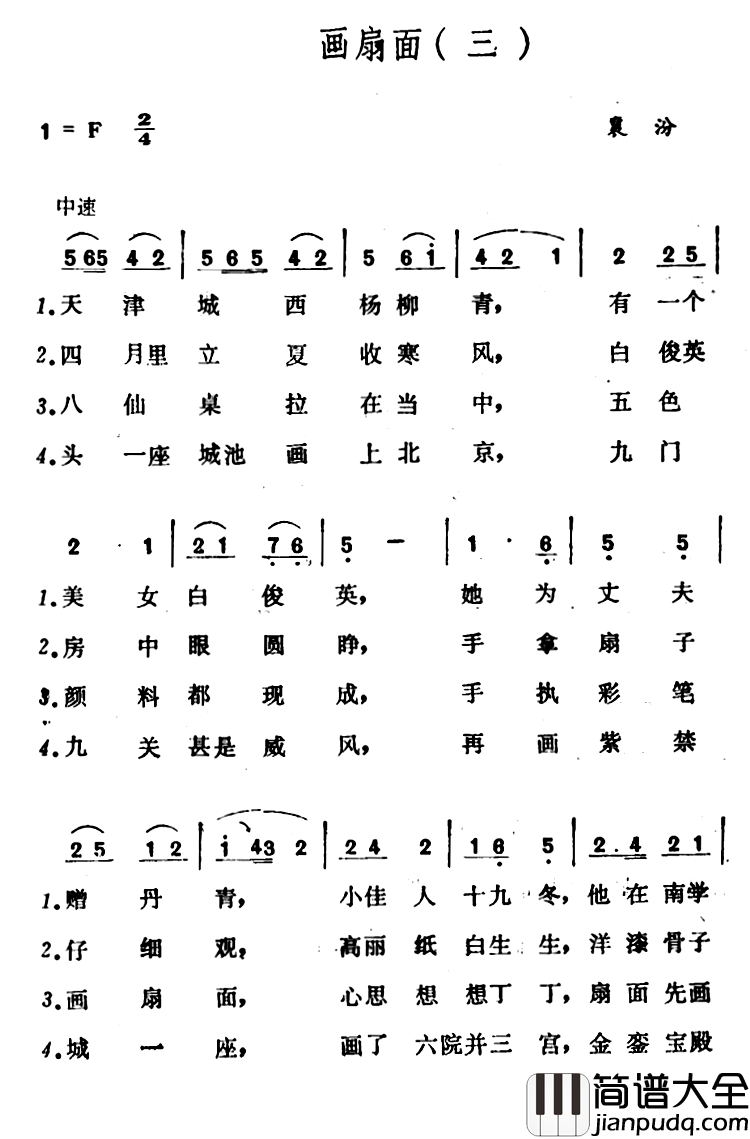 画扇面(三)
1=F 2/4 襄汾
中速
565 42 | 565 65 42 | 5 6i | 42 1 | 2 25 |
1.天津城西杨柳青，有一个
2.四月里立夏收寒风，白俊英
3.八仙桌拉在当中，五色
4.头一座城池画上北京，九门
2 · 1 | 21 76 | 5 - | 1 · 6 | 5 5 |
1.美女白俊英，她为丈夫
2.房中眼圆睁，手拿扇子
3.颜料都现成，手执彩笔
4.九关甚是威风，再画紫禁
25 12 | i 43 2 | 24 2 | 16 5 | 2.4 21 |
1.赠丹青，小佳人十九冬，他在南学
2.仔细观，高丽纸白生生，洋漆骨子
3.画扇面，心思想想丁丁，扇面先画
4.城一座，画了六院并三宫，金銮宝殿
简谱大全
jianpudq.com